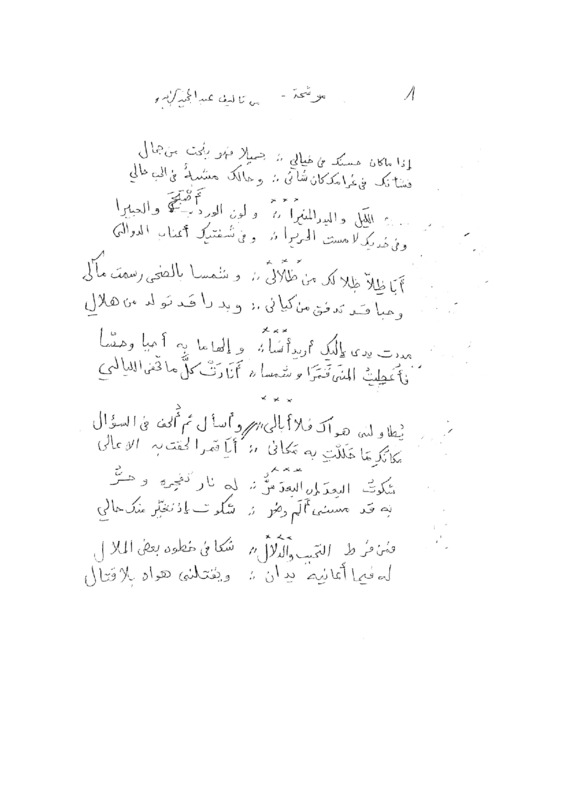 ٨ موشحة - من تأليف عبد المجيد
إذا ماكان حسنك في خيالي :: جميلا فهو ينحت من جمال
فشأنك في غرامك كان شأني :: وحالك مشبهٌ في الحب حالي
* * *
الليل والبدر المنيرا :: و لون الورد أضحى والعبيرا
وفي خديك لامست الحريرا :: وفي شفتيك أعناب الدوالي
* * *
أيا ظِلاّ ظلالك من ظلالي :: و شمسا بالضحى رسمت مآلي
وحبا قد تدفق من كياني :: وبدرا قد تولد من هلال
* * *
مددت يدي إليك أريد أُنسا :: و إلهاما به أحيا وحسّا
فأُعطِيتُ المنى قمرًا وشمسا :: أنارَتْ كلَّ ما تخفي الليالي
* * *
يُطاولني هواك فلا أبالي // وأسأل ثم أُلحف في السؤال
مكانكِ ما حَلَلْتِ به مكاني :: أيا قمرا لحقت به الاعالي
* * *
شكوتُ البعدَ إن البعدَ مرٌّ :: له نار تفجره و حَرٌّ
به قد مسني ألم وضر :: شكوت إذ تغيَّر منك حالي
* * *
فمن فرط التجنب والدلال :: شكا في خطوه بعض الملال
له فيما أعانيه يدان :: ويقتلني هواه بلا قتال